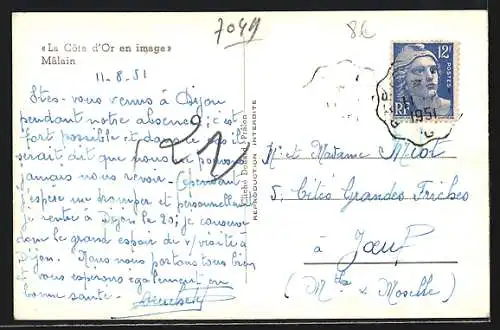 7049
86
« La Côte d'Or en image »
Mâlain
11-8-51
Êtes-vous venus à Dijon
pendant notre absence; c'est
fort possible et dans ce cas il
serait dit que nous ne pouvons
jamais nous revoir. Cependant
j'espère me tromper et personnellement
je rentre à Dijon le 20; je conserve
donc le grand espoir de v/ visite à
Dijon. Nous nous portons tous bien
et vous espérons également en
bonne santé.
21
Cliché Proton
REPRODUCTION INTERDITE
12F
POSTES
RF
1951
Mr et Madame Miot
5, Cités Grandes Friches
à Joeuf
(Mthe & Moselle)